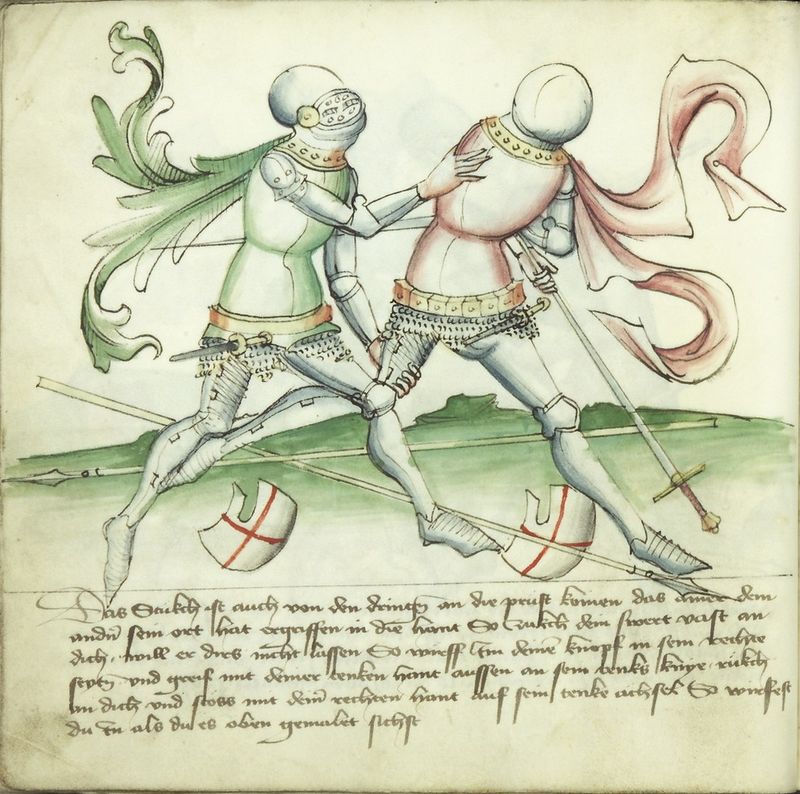 Das Stukch ist auch von den dringen an die prüst komen das ainer dem
andern sein ort hat ergriffen in die hant So zukch dem swert vast an
dich will er dirs nicht lassen So würff Im deinen knopf in sein rechte
seytn und greif mit deiner tenken hant aussen an sein tenks knye rukch
an dich und stoss mit deiner rechten hant auf sein tenke achsel So wurfest
du in als du es oben gemalet sichst